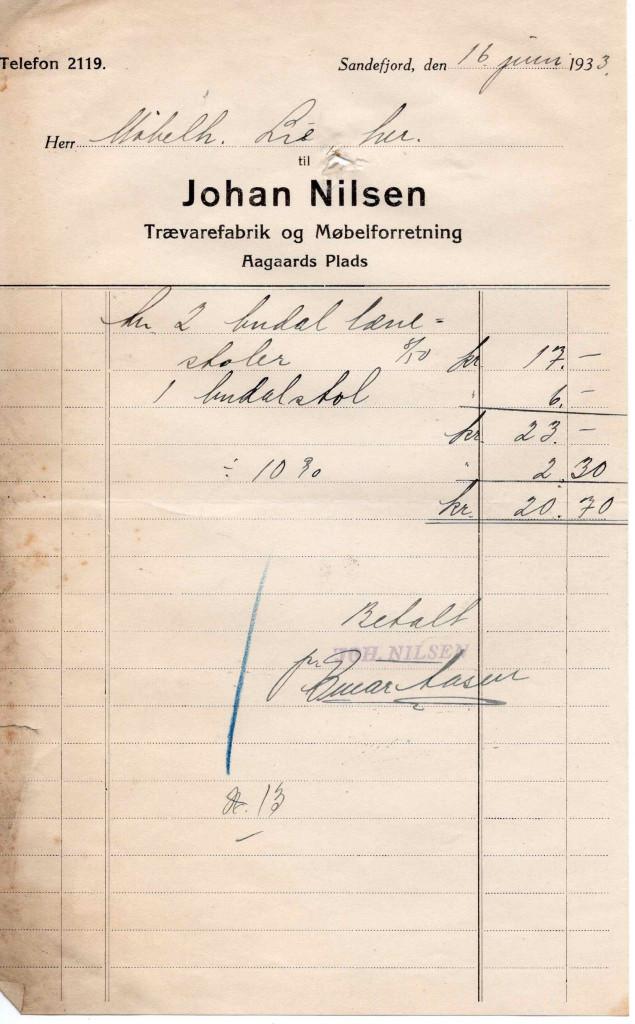 Telefon 2119.
Sandefjord, den 16. juni 1933.
Herr Møbelh. Lie, her.
til
Johan Nilsen
Trævarefabrik og Møbelforretning
Aagaards Plads
2 budal læne-
stoler 8/50 kr 17.-
1 budalstol " 6.-
kr. 23.-
÷ 10 % " 2.30
kr. 20.70
Betalt
JOH. NILSEN
pr
13